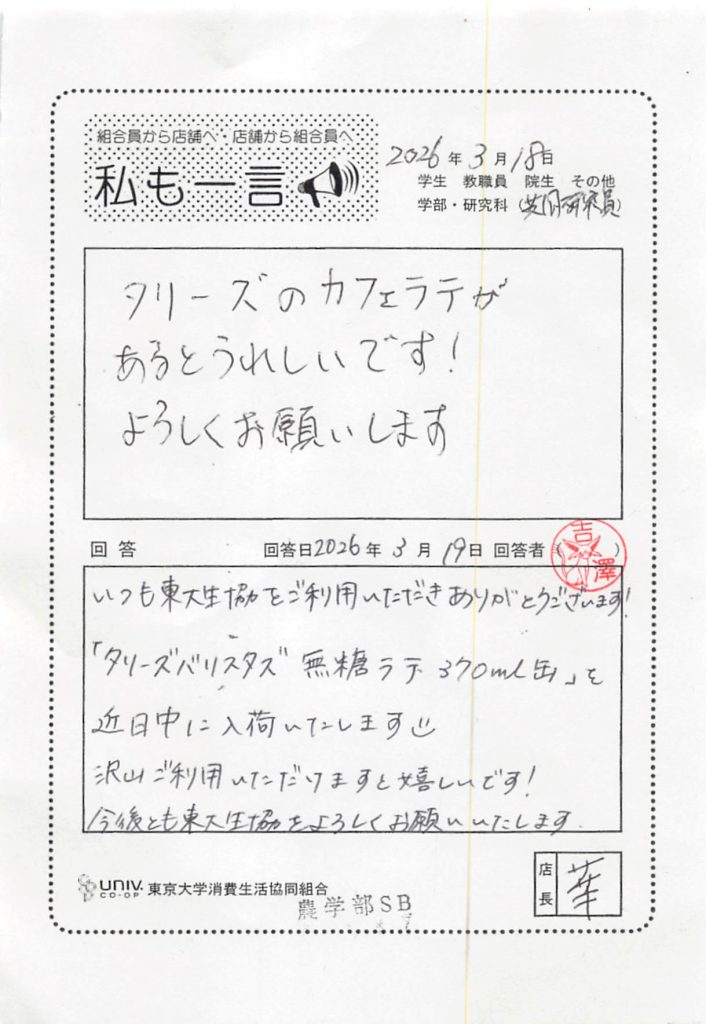 組合員から店舗へ・店舗から組合員へ
私も一言
2026年3月18日
学生 教職員 院生 その他
学部・研究科(共同研究員)
タリーズのカフェラテが
あるとうれしいです!
よろしくお願いします
回答 回答日2026年3月19日 回答者( )
吉澤
いつも東大生協をご利用いただきありがとうございます!
「タリーズバリスタズ 無糖ラテ 370ml缶」を
近日中に入荷いたします
沢山ご利用いただけますと嬉しいです!
今後とも東大生協をよろしくお願いいたします.
UNIV. CO-OP 東京大学消費生活協同組合
農学部SB
店長 華